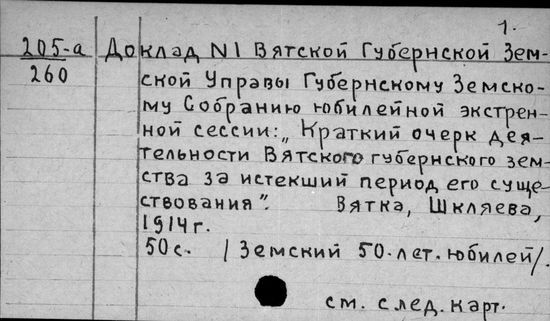 1.
205-а Доклад N1 Вятской Губернской Зем-
260 ской Управы Губернскому Земско-
му Собранию юбилейной экстрен-
ной сессии: „Краткий очерк дея-
тельности Вятского губернского зем-
ства за истекший период его суще
ствования". Вятка, Шкляева,
1914г.
50с. /Земский 50-лет. юбилей/.
см. след. карт.